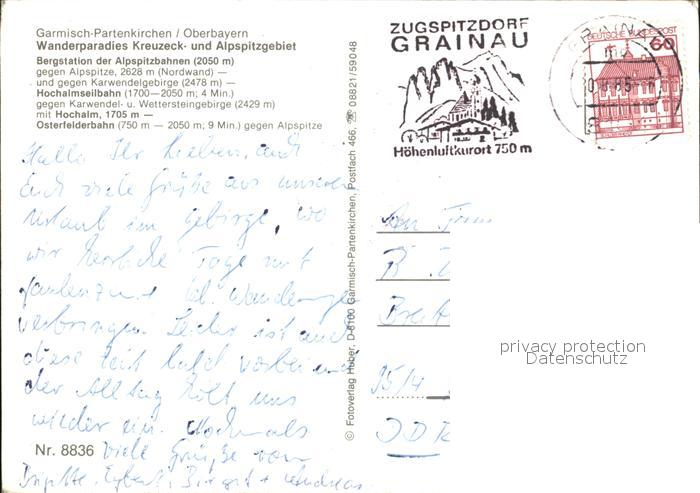 Garmisch-Partenkirchen / Oberbayern
Wanderparadies Kreuzeck- und Alpspitzgebiet
Bergstation der Alpspitzbahnen (2050 m)
gegen Alpspitze, 2628 m (Nordwand) —
und gegen Karwendelgebirge (2478 m) —
Hochalmseilbahn (1700—2050 m; 4 Min.)
gegen Karwendel- u. Wettersteingebirge (2429 m)
mit Hochalm, 1705 m —
Osterfelderbahn (750 m — 2050 m; 9 Min.) gegen Alpspitze
Hallo Ihr Lieben, auch
Euch viele Grüße aus unserem
Urlaub im Gebirge, wo
wir herrliche Tage mit
faulenzen u. kl. Wanderungen
verbringen. Leider ist auch
diese Zeit bald vorbei und
der Alltag holt uns
wieder ein. Nochmals
viele Grüße von
Brigitte, Egbert, Birgit + Andreas
Nr. 8836
© Fotoverlag Huber, D-8100 Garmisch-Partenkirchen, Postfach 466, ☏ 08821/59048
ZUGSPITZDORF
GRAINAU
Höhenluftkurort 750 m
GRAINAU
DEUTSCHE BUNDESPOST
60
Fam.
B
Breit
DDR
privacy protection
Datenschutz